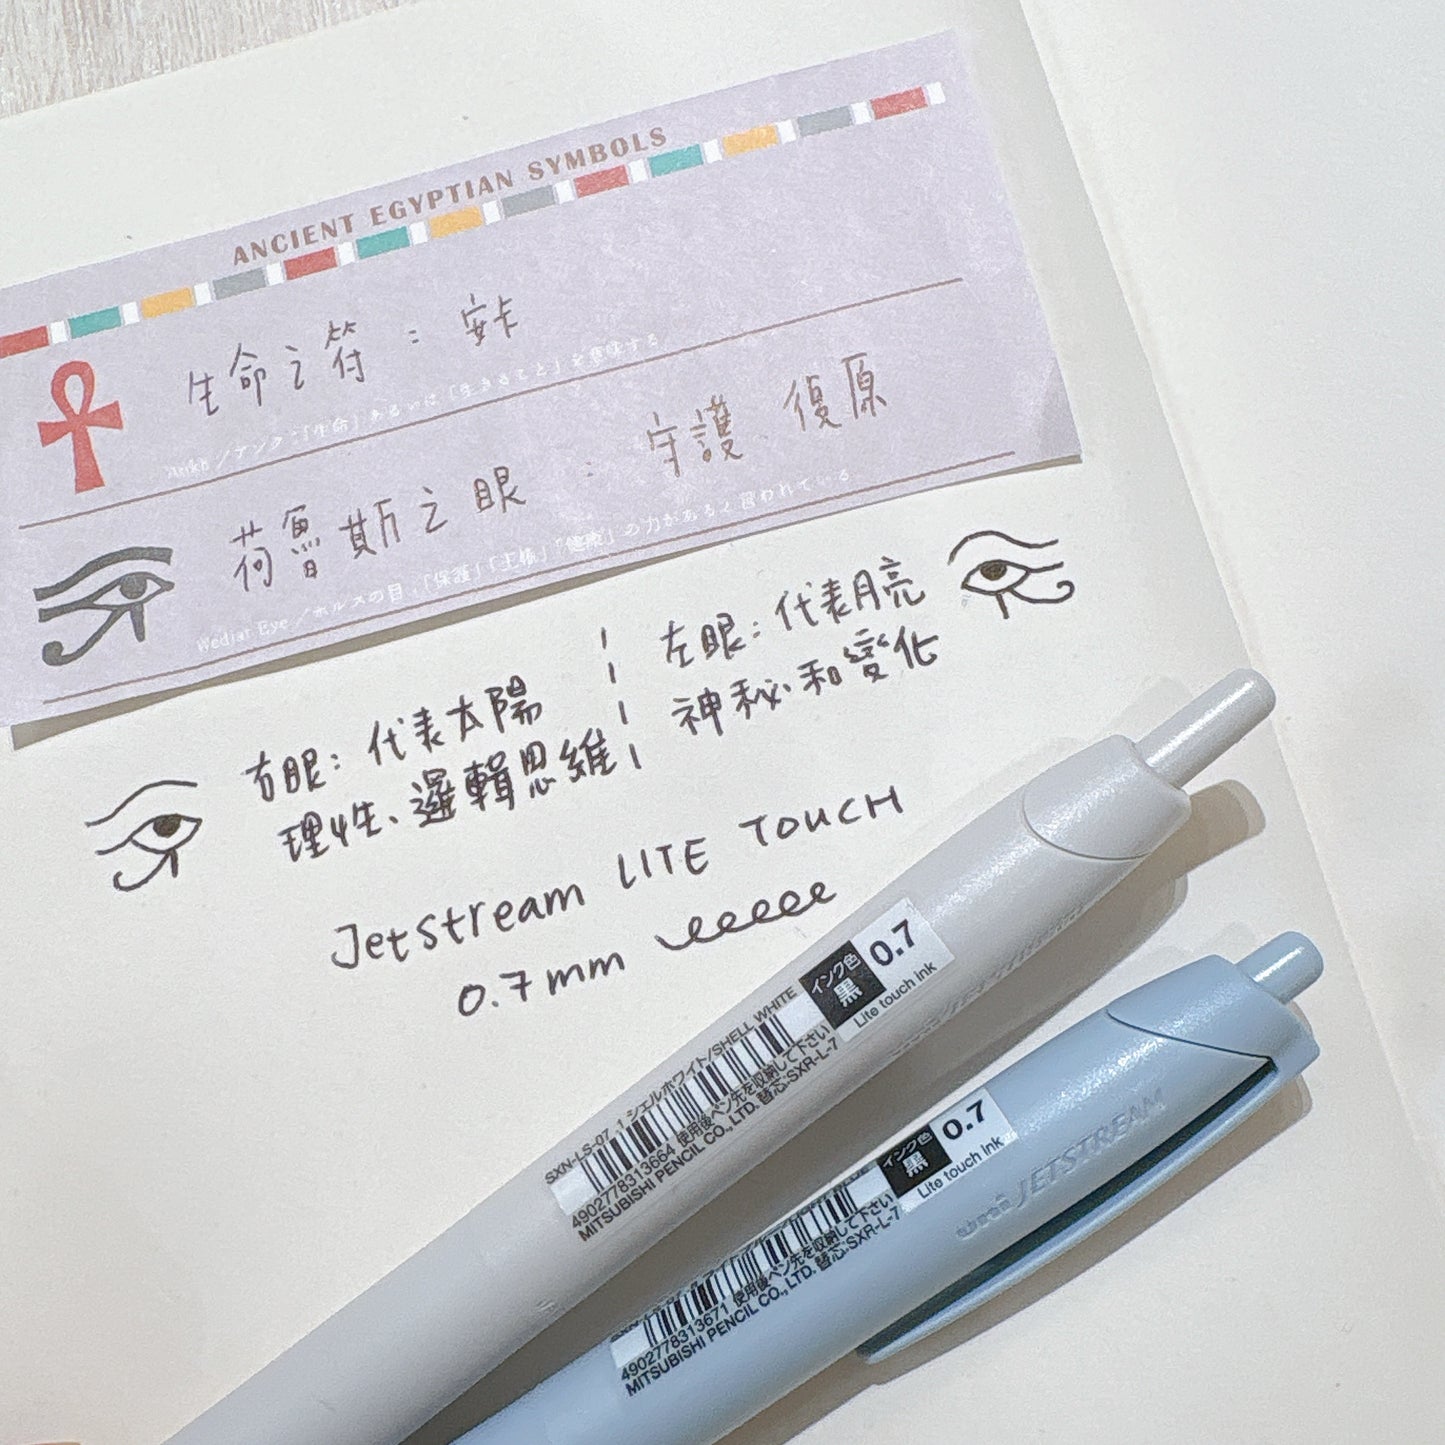 ANCIENT EGYPTIAN SYMBOLS
生命之符：安卡
Ankh／アンク：「生命」あるいは「生きること」を意味する
荷魯斯之眼：守護、復原
Wedjat Eye／ホルスの目：「保護」「主張」「健康」の力があると言われている
右眼：代表太陽
理性、邏輯思維
左眼：代表月亮
神秘、和變化
Jetstream LITE TOUCH
0.7mm
SXN-LS-07 .1 シェルホワイト/SHELL WHITE
4902778313664 使用後ペン先を収納して下さい
MITSUBISHI PENCIL CO., LTD. 替芯:SXR-L-7
インク色
黒
0.7
Lite touch ink
4902778313671 使用後ペン先を収納して下さい
MITSUBISHI PENCIL CO., LTD. 替芯:SXR-L-7
インク色
黒
0.7
Lite touch ink
uni JETSTREAM